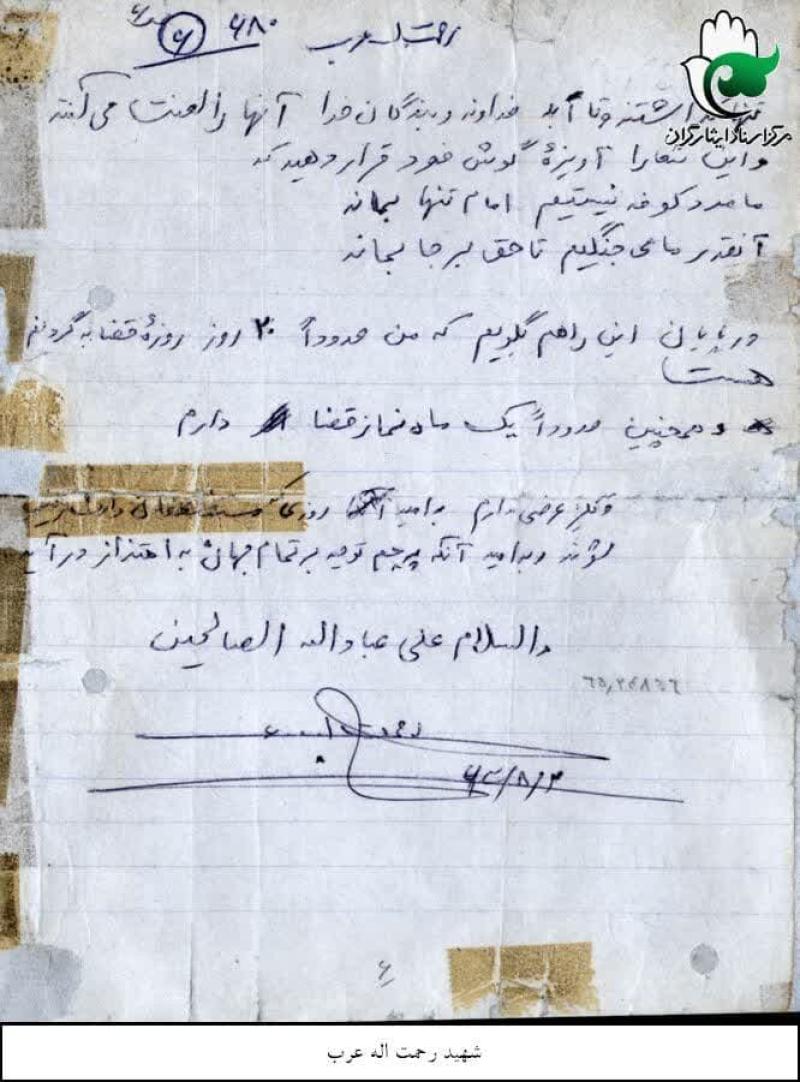 رحمت اله عرب
۶۸۰
۶
مرکز اسناد ایثارگران
تنها گذاشتند و تا آبد خداوند و بندگان خدا آنها را لعنت می کنند
و این شعار را آویزهٔ گوش خود قرار دهید که
ما مرد کوفه نیستیم امام تنها بماند
آنقدر ما می جنگیم تا حق بر جا بماند
در پایان این را هم بگویم که من حدوداً ۲۰ روز روزهٔ قضا به گردنم
هست
و همچنین حدوداً یک ماه نماز قضا دارم
و دیگر عرضی ندارم به امید روزی که
شوند و به امید آنکه پرچم توحید بر تمام جهان به اهتزاز در آید
والسلام علی عباد الله الصالحین
رحمت اله عرب
۶۲/۸/۳
۶
شهید رحمت اله عرب